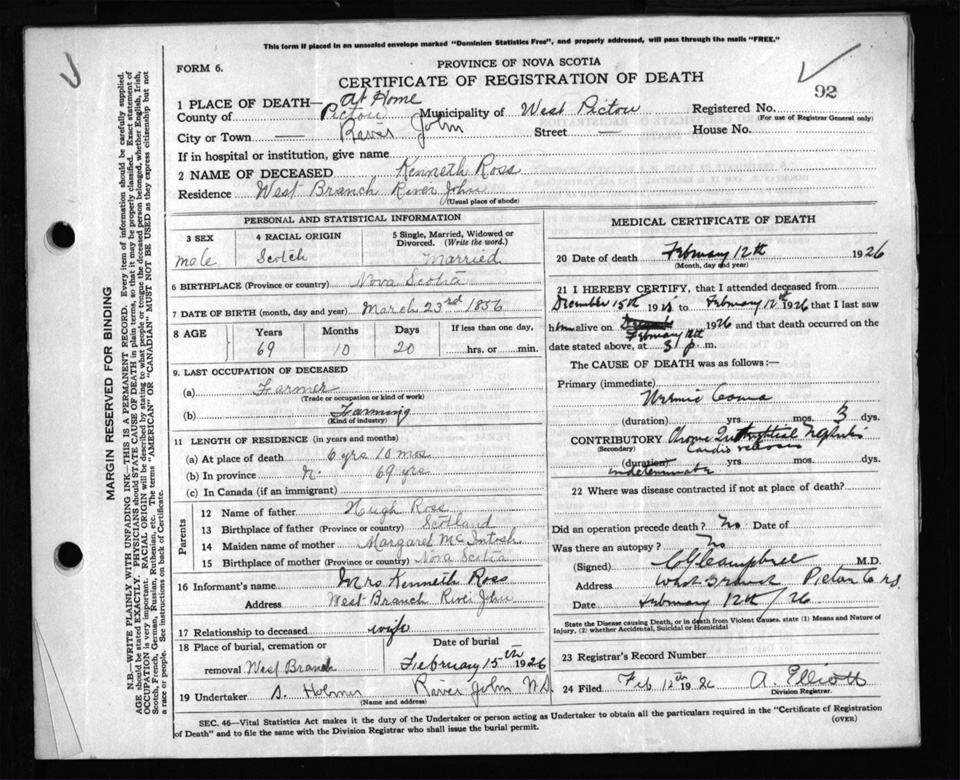 This form if placed in an unsealed envelope marked "Dominion Statistics Free", and properly addressed, will pass through the mails "FREE."
FORM 6.
PROVINCE OF NOVA SCOTIA
CERTIFICATE OF REGISTRATION OF DEATH
92
1 PLACE OF DEATH— At Home
County of Pictou Municipality of West Pictou Registered No.
(For use of Registrar General only)
City or Town — River John Street — House No.
If in hospital or institution, give name
2 NAME OF DECEASED Kenneth Ross
Residence West Branch River John
(Usual place of abode)
PERSONAL AND STATISTICAL INFORMATION
3 SEX 4 RACIAL ORIGIN 5 Single, Married, Widowed or Divorced. (Write the word.)
male Scotch Married
6 BIRTHPLACE (Province or country) Nova Scotia
7 DATE OF BIRTH (month, day and year) March 23rd 1856
8 AGE Years Months Days If less than one day,
69 10 20 hrs. or min.
9. LAST OCCUPATION OF DECEASED
(a) Farmer
(Trade or occupation or kind of work)
(b) Farming
(Kind of industry)
11 LENGTH OF RESIDENCE (in years and months)
(a) At place of death 6 yrs 10 mos
(b) In province 69 yrs
(c) In Canada (if an immigrant)
Parents
12 Name of father Hugh Ross
13 Birthplace of father (Province or country) Scotland
14 Maiden name of mother Margaret McIntosh
15 Birthplace of mother (Province or country) Nova Scotia
16 Informant's name Mrs Kenneth Ross
Address West Branch River John
17 Relationship to deceased wife
18 Place of burial, cremation or removal West Branch Date of burial February 15th 1926
19 Undertaker S. Holmes River John N.S.
(Name and address)
MEDICAL CERTIFICATE OF DEATH
20 Date of death February 12th 1926
(Month, day and year)
21 I HEREBY CERTIFY, that I attended deceased from
December 15th 1925 to February 12th 1926 that I last saw
him alive on February 12th 1926 and that death occurred on the
date stated above, at 3 p. m.
The CAUSE OF DEATH was as follows:—
Primary (immediate)
Uremic Coma
(duration) yrs. mos. 3 dys.
CONTRIBUTORY Nephritis
(Secondary)
(duration) yrs. mos. dys.
indeterminate
22 Where was disease contracted if not at place of death?
Did an operation precede death? No Date of
Was there an autopsy? No
(Signed) M.D.
Address Pictou Co NS
Date February 12th/26
State the Disease causing Death, or in death from Violent Causes, state (1) Means and Nature of Injury, (2) whether Accidental, Suicidal or Homicidal
23 Registrar's Record Number
24 Filed Feb 12th 1926 A. Elliott
Division Registrar.
SEC. 46—Vital Statistics Act makes it the duty of the Undertaker or person acting as Undertaker to obtain all the particulars required in the "Certificate of Registration
of Death" and to file the same with the Division Registrar who shall issue the burial permit.
(OVER)
MARGIN RESERVED FOR BINDING
N.B.—WRITE PLAINLY WITH UNFADING INK—THIS IS A PERMANENT RECORD. Every item of information should be carefully supplied.
AGE should be stated EXACTLY. PHYSICIANS should STATE CAUSE OF DEATH in plain terms, so that it may be properly classified. Exact statement of
OCCUPATION is very important. RACIAL ORIGIN will be described by stating to what people or tongue the deceased person belonged, whether English, Irish,
Scotch, French, German, Russian, Ruthenian, etc. The terms "AMERICAN" OR "CANADIAN" MUST NOT BE USED as they express citizenship but not
a race or people. See instructions on back of Certificate.